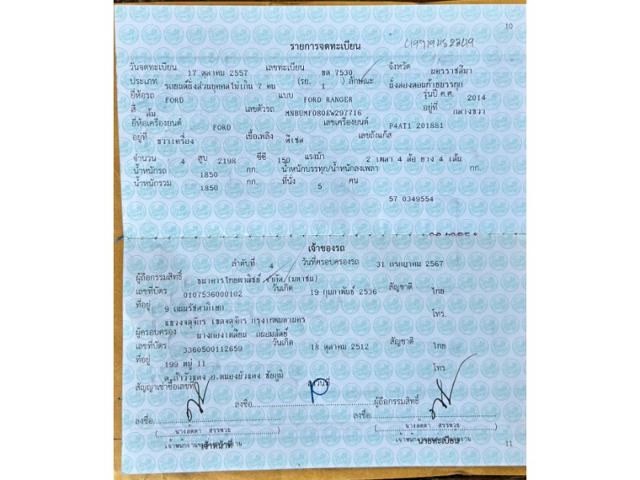 10
รายการจดทะเบียน
วันจดทะเบียน 17 ตุลาคม 2557 เลขทะเบียน ขต 7530 จังหวัด นครราชสีมา
ประเภท รถยนต์นั่งส่วนบุคคลไม่เกิน 7 คน (รย. 1 ) ลักษณะ นั่งสองตอนท้ายบรรทุก
ยี่ห้อรถ FORD แบบ FORD RANGER รุ่นปี ค.ศ. 2014
สี ส้ม เลขตัวรถ MNBUMF080EW297716 อยู่ที่ กลางขวา
ยี่ห้อเครื่องยนต์ FORD เลขเครื่องยนต์ P4AT1 201881
อยู่ที่ ขวาเครื่อง เชื้อเพลิง ดีเซล เลขถังแก๊ส
จำนวน 4 สูบ 2198 ซีซี 150 แรงม้า 2 เพลา 4 ล้อ ยาง 4 เส้น
น้ำหนักรถ 1850 กก. น้ำหนักบรรทุก/น้ำหนักลงเพลา กก.
น้ำหนักรวม 1850 กก. ที่นั่ง 5 คน
57 0349554
เจ้าของรถ
ลำดับที่ 4 วันที่ครอบครองรถ 31 กรกฎาคม 2567
ผู้ถือกรรมสิทธิ์ ธนาคารไทยพาณิชย์ จำกัด/(มหาชน)
เลขที่บัตร 0107536000102 วันเกิด 19 กุมภาพันธ์ 2536 สัญชาติ ไทย
ที่อยู่ 9 ถนนรัชดาภิเษก โทร.
แขวงจตุจักร เขตจตุจักร กรุงเทพมหานคร
ผู้ครอบครอง นางทองเหลี่ยม
เลขที่บัตร 3360500112659 วันเกิด 18 ตุลาคม 2512 สัญชาติ ไทย
ที่อยู่ 199 หมู่ 11 โทร.
อ.หนองบัวแดง ชัยภูมิ
สัญญาเช่าซื้อเลขที่ ลงวันที่
ลงชื่อ ลงชื่อ ผู้ถือกรรมสิทธิ์
ลงชื่อ
( นางลัดดา สรรพวุธ ) ( นางลัดดา สรรพวุธ )
เจ้าหน้าที่ นายทะเบียน
11